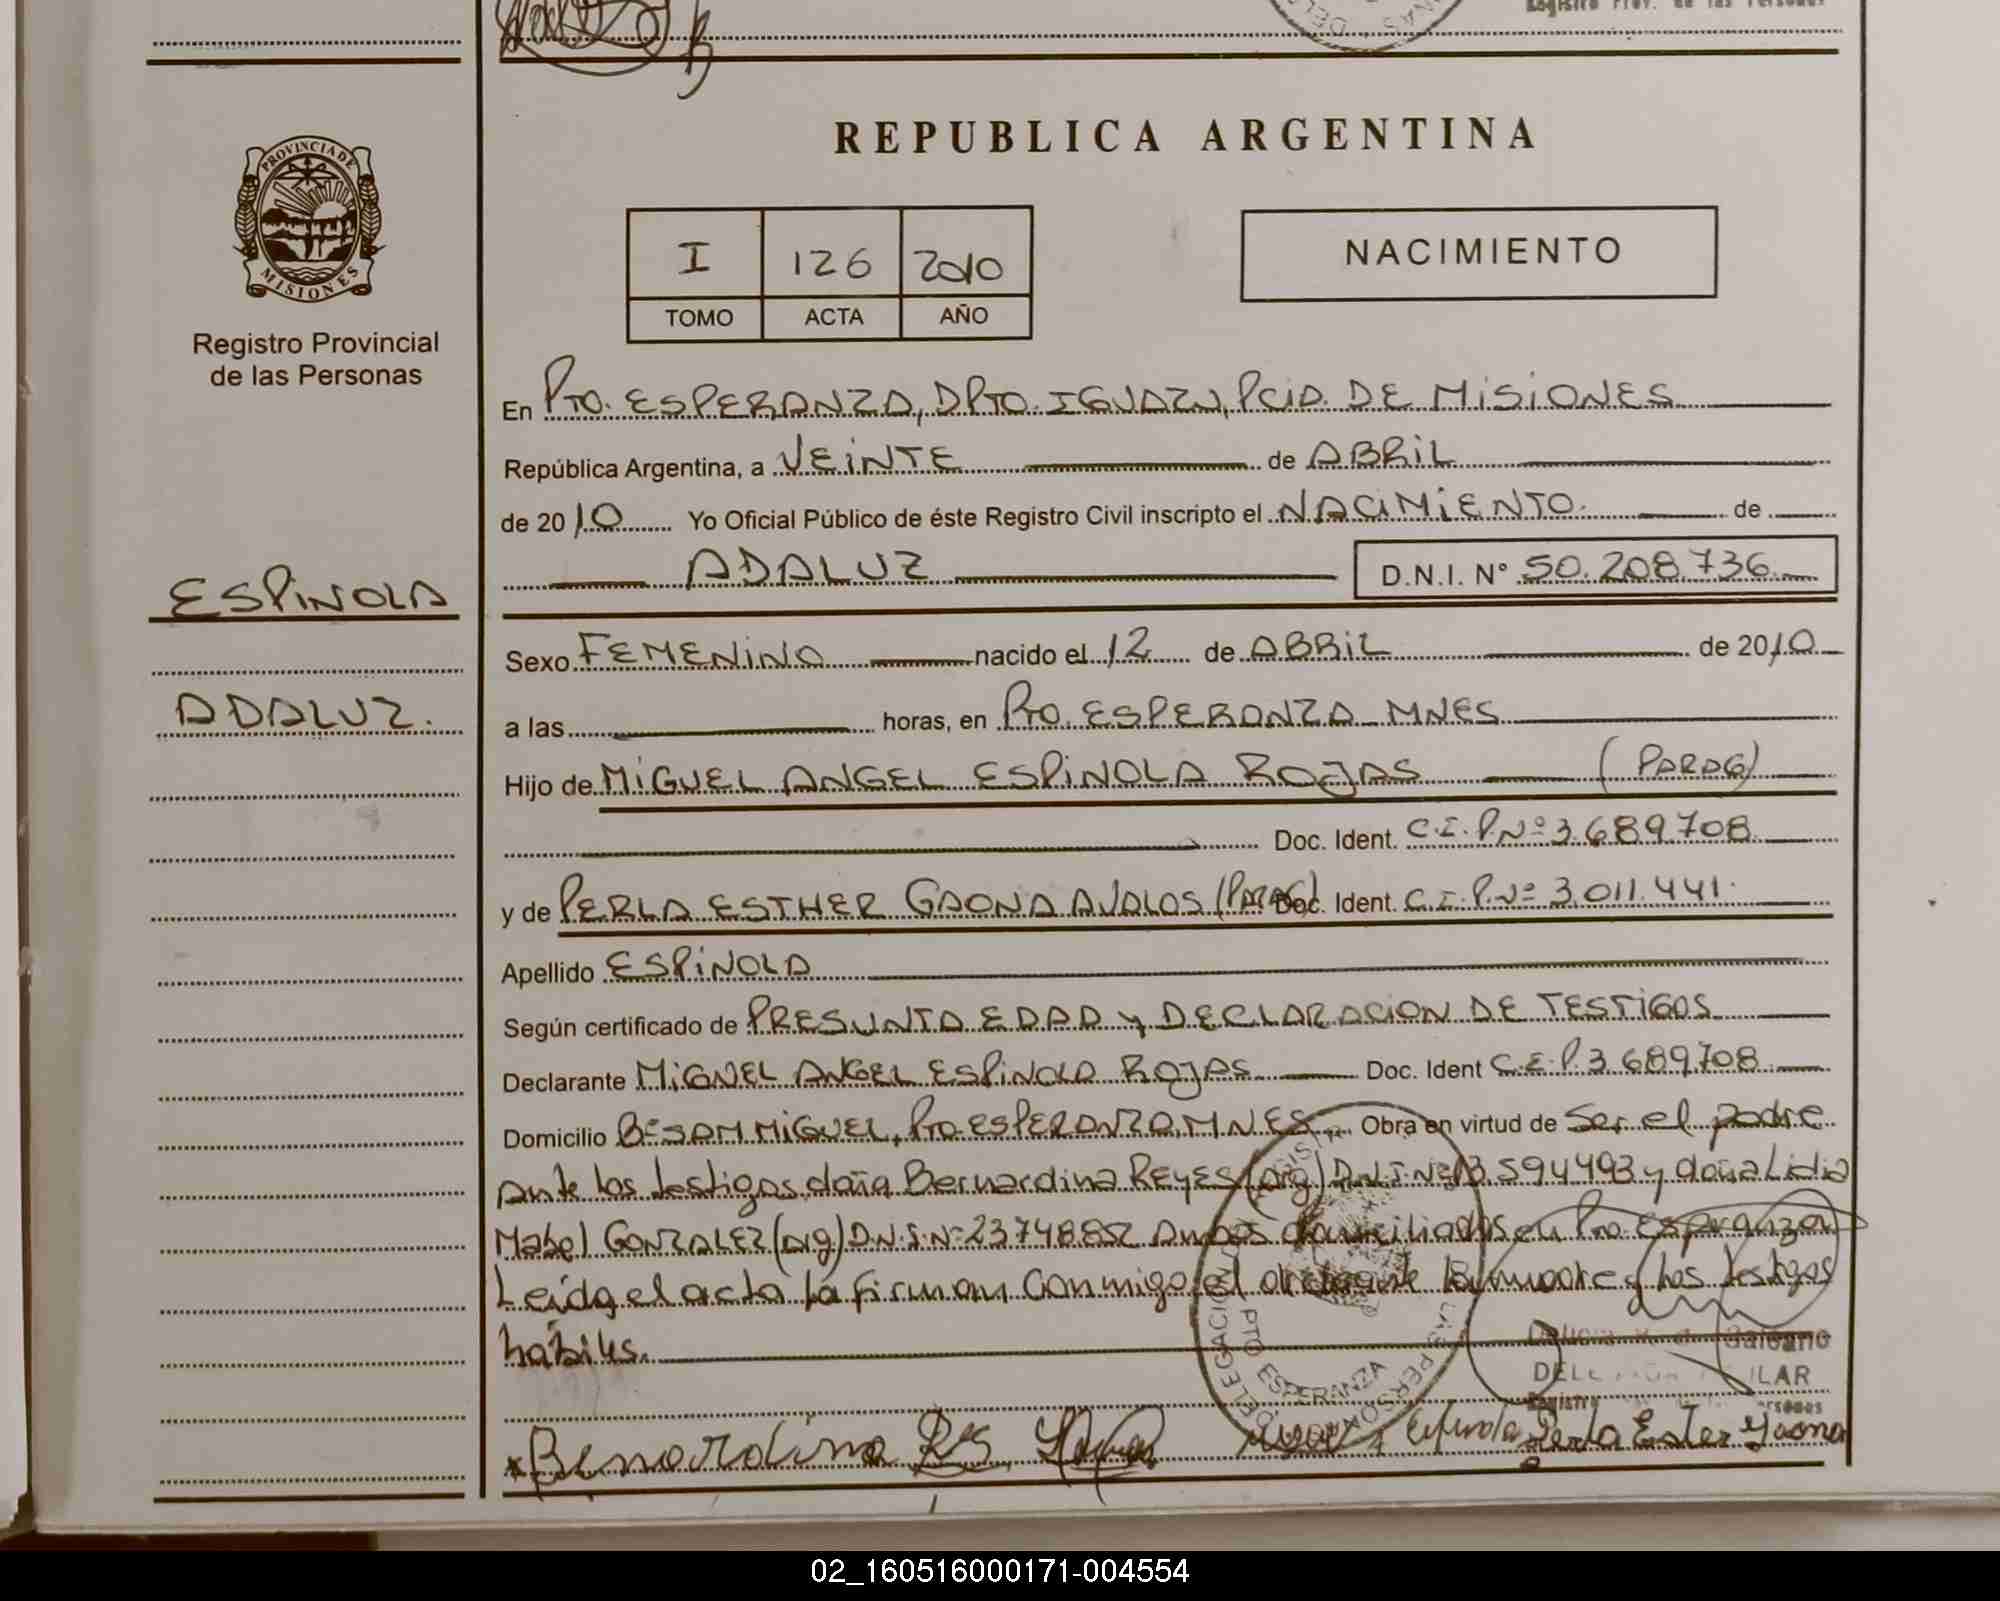 Registro Prov. de las Personas
PROVINCIA DE
MISIONES
Registro Provincial
de las Personas
ESPINOLA
ADALUZ.
REPUBLICA ARGENTINA
I 126 2010
TOMO ACTA AÑO
NACIMIENTO
En Pto. ESPERANZA, DPTO. IGUAZU, PCIA. DE MISIONES
República Argentina, a VEINTE de ABRIL
de 2010 Yo Oficial Público de éste Registro Civil inscripto el NACIMIENTO. de
ADALUZ D.N.I. N° 50.208.736
Sexo FEMENINO nacido el 12 de ABRIL de 2010
a las horas, en Pto. ESPERANZA MNES
Hijo de MIGUEL ANGEL ESPINOLA ROJAS (PARAG)
Doc. Ident. C.I.P.Nº 3.689.708
y de PERLA ESTHER GAONA AVALOS (PARAG) Doc. Ident. C.I.P.Nº 3.011.441.
Apellido ESPINOLA
Según certificado de PRESUNTA EDAD y DECLARACION DE TESTIGOS
Declarante MIGUEL ANGEL ESPINOLA ROJAS Doc. Ident C.E.P. 3.689.708
Domicilio Bº SAN MIGUEL, Pto. ESPERANZA, MNES Obra en virtud de Ser el padre
ante los testigos doña Bernardina REYES (arg) D.N.I. Nº 13.594493 y doña Lidia
Mabel GONZALEZ (arg) D.N.I. Nº 23748852 Ambos domiciliados en Pto. Esperanza
Leída el acta la firman conmigo el la madre y los testigos
habiles.
Galeano
ILAR
DELEGACION PTO ESPERANZA
LAS PERSONAS
Bernardina Espinola Perla Ester Gaona
02_160516000171-004554